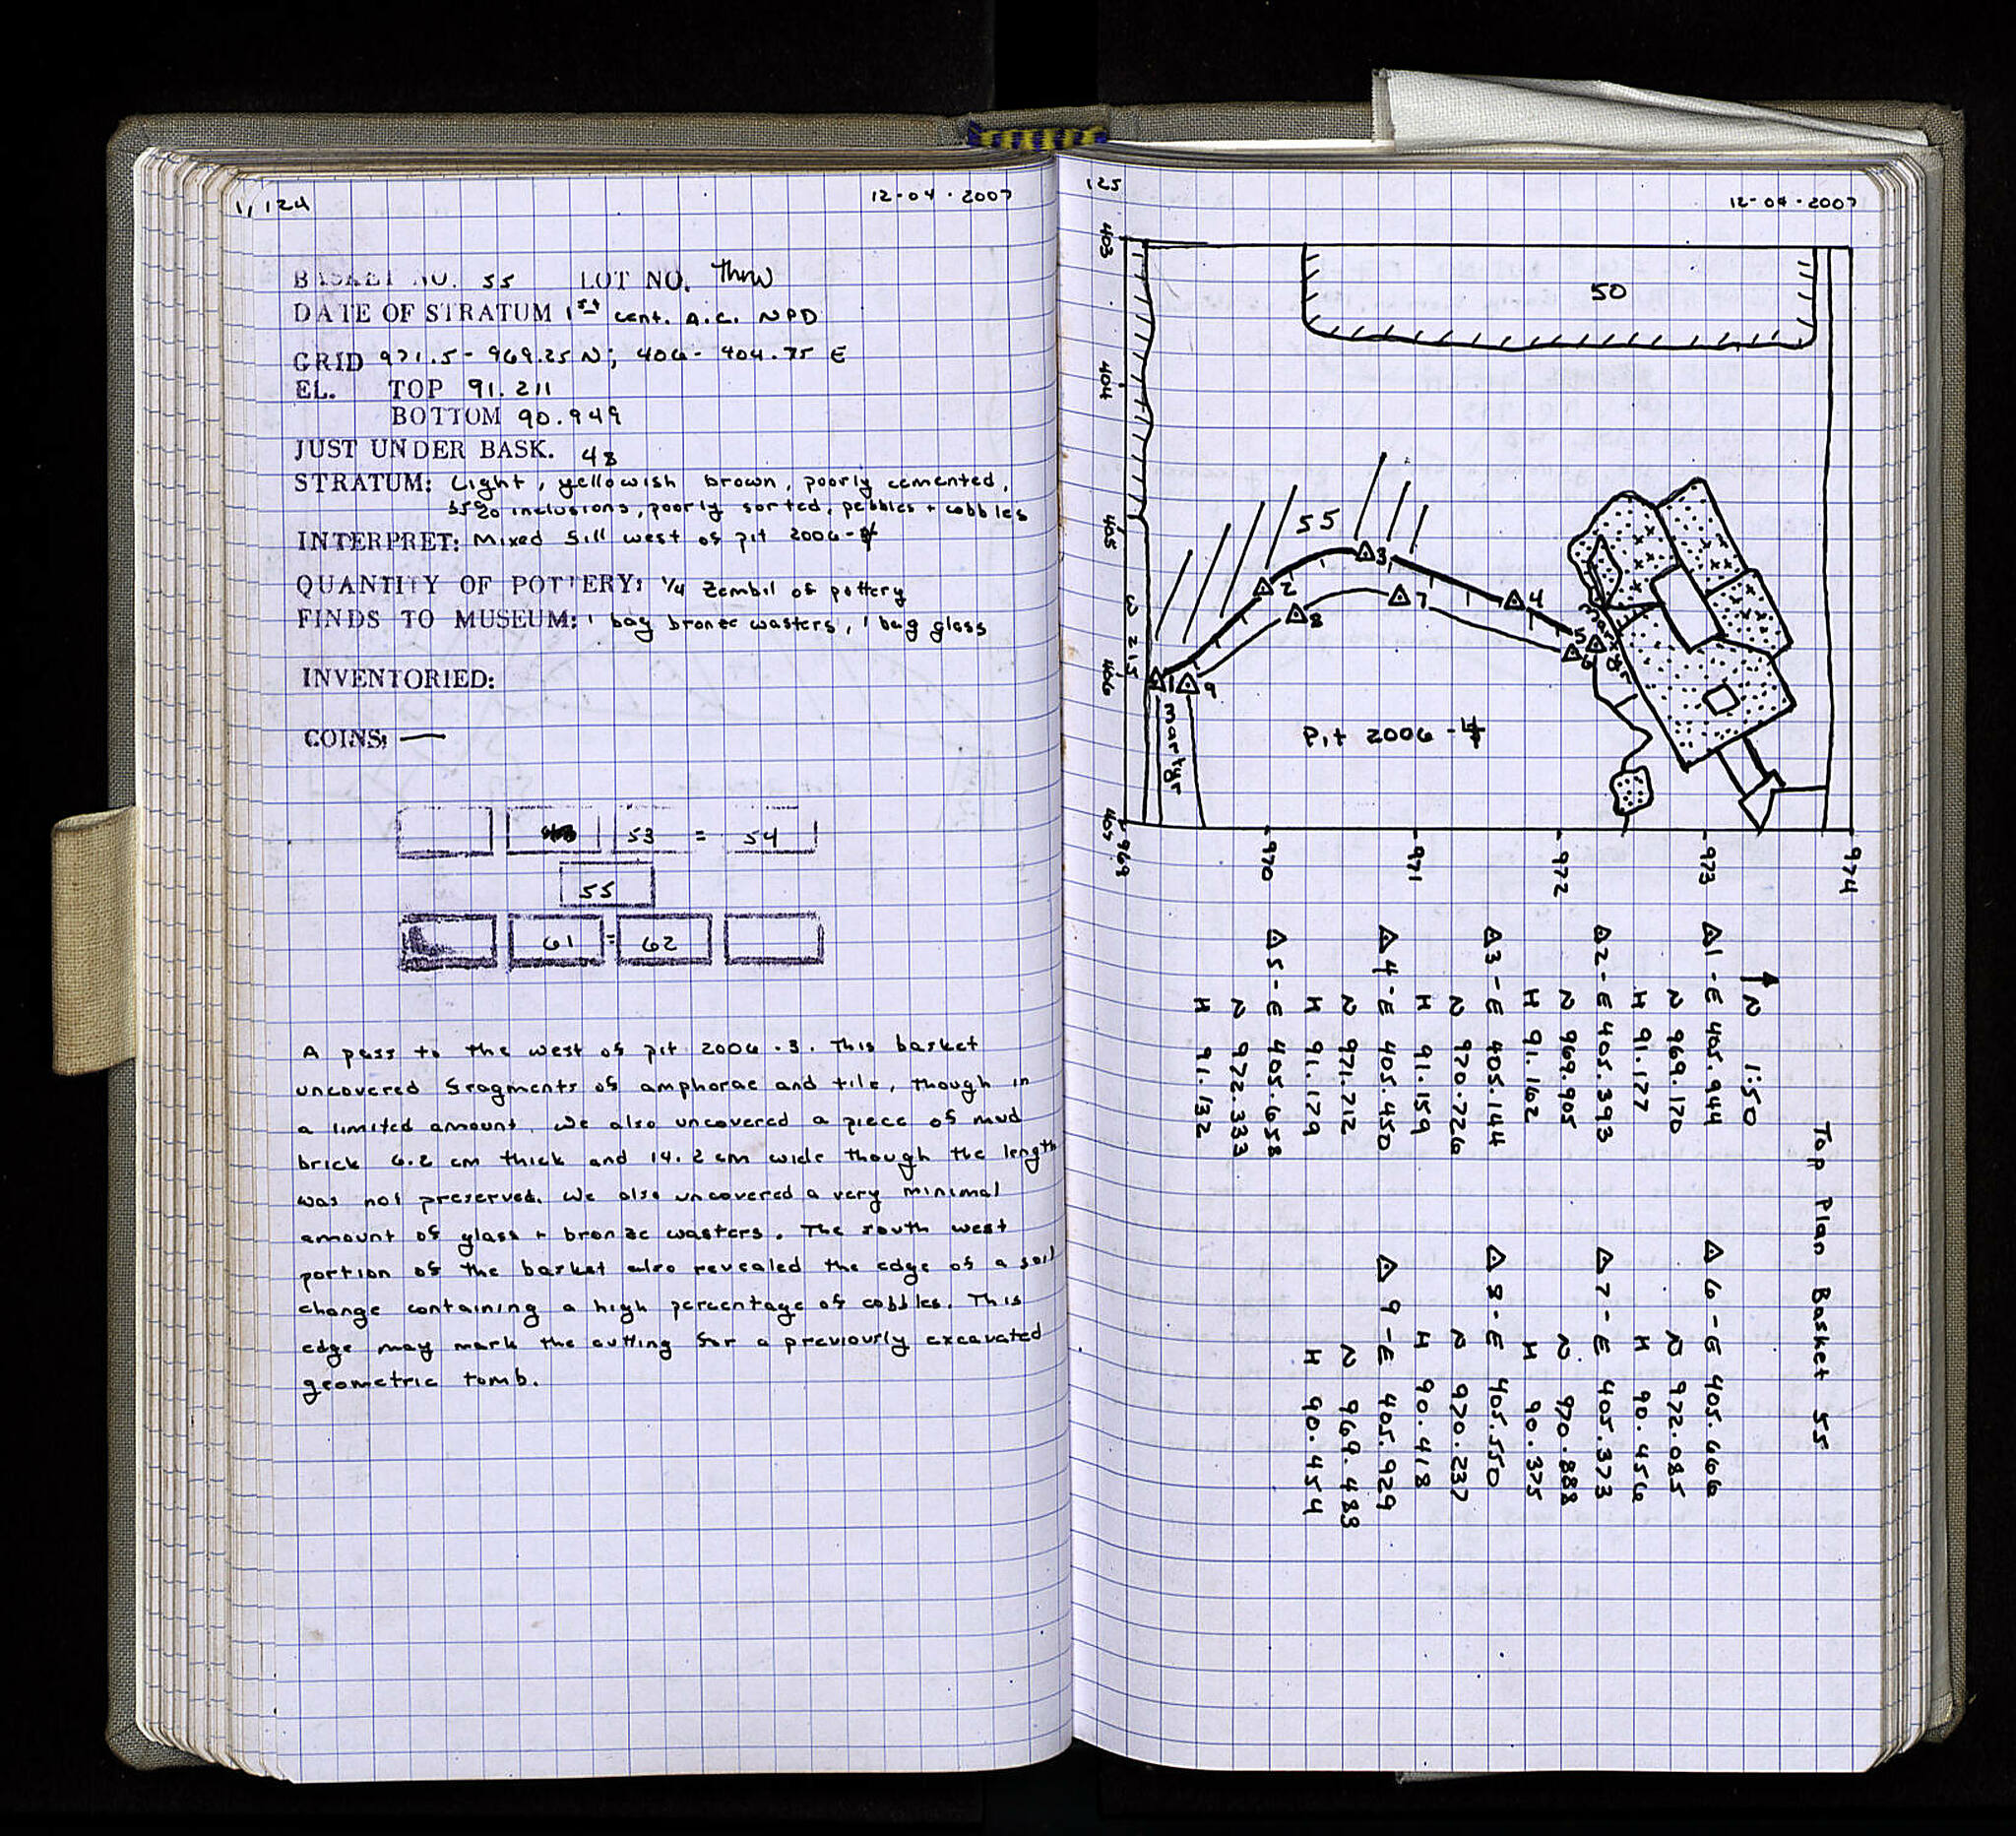 1, 124
12-04-2007
BASKET NO. 55 LOT NO. Throw
DATE OF STRATUM 1st cent. A.C. NPD
GRID 971.5 - 969.25 N; 406 - 404.75 E
EL. TOP 91.211
BOTTOM 90.949
JUST UNDER BASK. 48
STRATUM: Light, yellowish brown, poorly cemented,
inclusions, poorly sorted, pebbles + cobbles
INTERPRET: Mixed fill west of pit 2006-4
QUANTITY OF POTTERY: 1/4 Zembil of pottery
FINDS TO MUSEUM: 1 bag bronze wasters, 1 bag glass
INVENTORIED:
COINS: —
53 = 54
55
61 = 62
A pass to the west of pit 2006-3. This basket
uncovered fragments of amphorae and tile, though in
a limited amount. We also uncovered a piece of mud
brick 6.2 cm thick and 14.2 cm wide though the length
was not preserved. We also uncovered a very minimal
amount of glass + bronze wasters. The south west
portion of the basket also revealed the edge of a soil
change containing a high percentage of cobbles. This
edge may mark the cutting for a previously excavated
geometric tomb.
125
12-04-2007
403
404
405
406
407
969
970
971
972
973
974
50
55
1
2
3
4
5
6
7
8
9
Martyr
Martyr
Pit 2006-4
Top Plan Basket 55
N 1:50
△1 - E 405.944
N 969.170
H 91.177
△2 - E 405.393
N 969.905
H 91.162
△3 - E 405.144
N 970.726
H 91.159
△4 - E 405.450
N 971.712
H 91.179
△5 - E 405.658
N 972.333
H 91.132
△6 - E 405.666
N 972.085
H 90.456
△7 - E 405.373
N 970.888
H 90.375
△8 - E 405.550
N 970.237
H 90.418
△9 - E 405.929
N 969.483
H 90.454